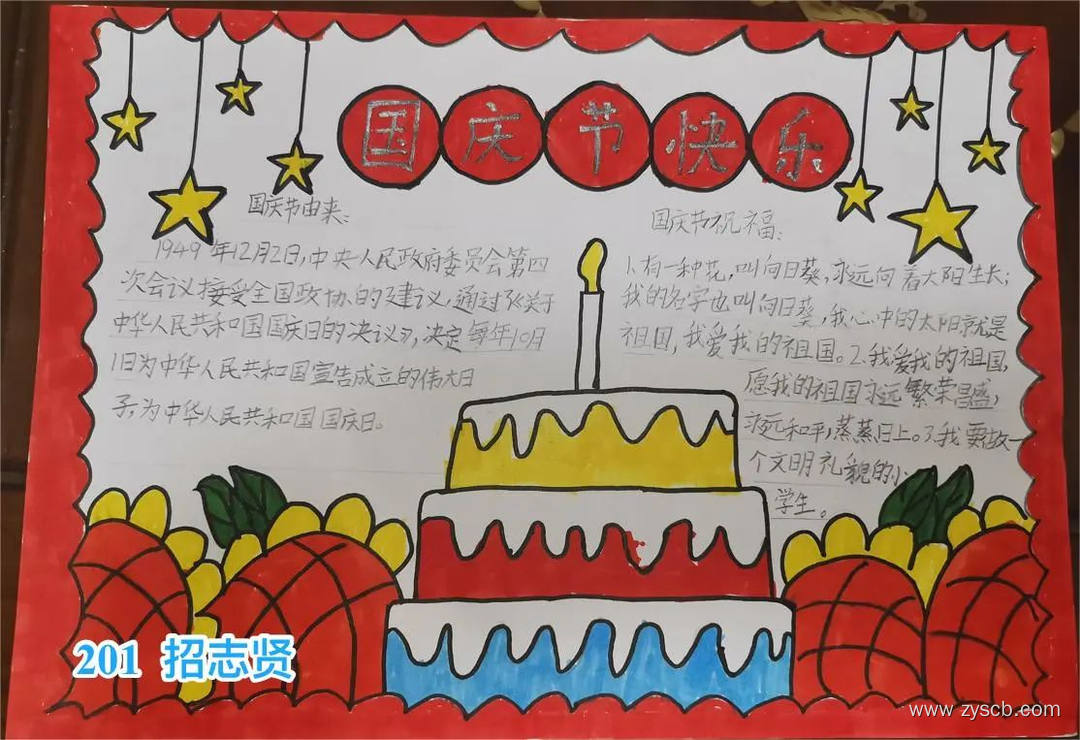 国庆节快乐
国庆节由来:
1949年12月2日,中央人民政府委员会第四
次会议接受全国政协的建议,通过了《关于
中华人民共和国国庆日的决议》,决定每年10月
1日为中华人民共和国宣告成立的伟大日
子,为中华人民共和国国庆日。
国庆节祝福:
1.有一种花,叫向日葵,永远向着太阳生长;
我的名字也叫向日葵,我心中的太阳就是
祖国,我爱我的祖国。2.我爱我的祖国,
愿我的祖国永远繁荣昌盛,
永远和平,蒸蒸日上。3.我要做一
个文明礼貌的小
学生。
201 招志贤
www.zyscb.com